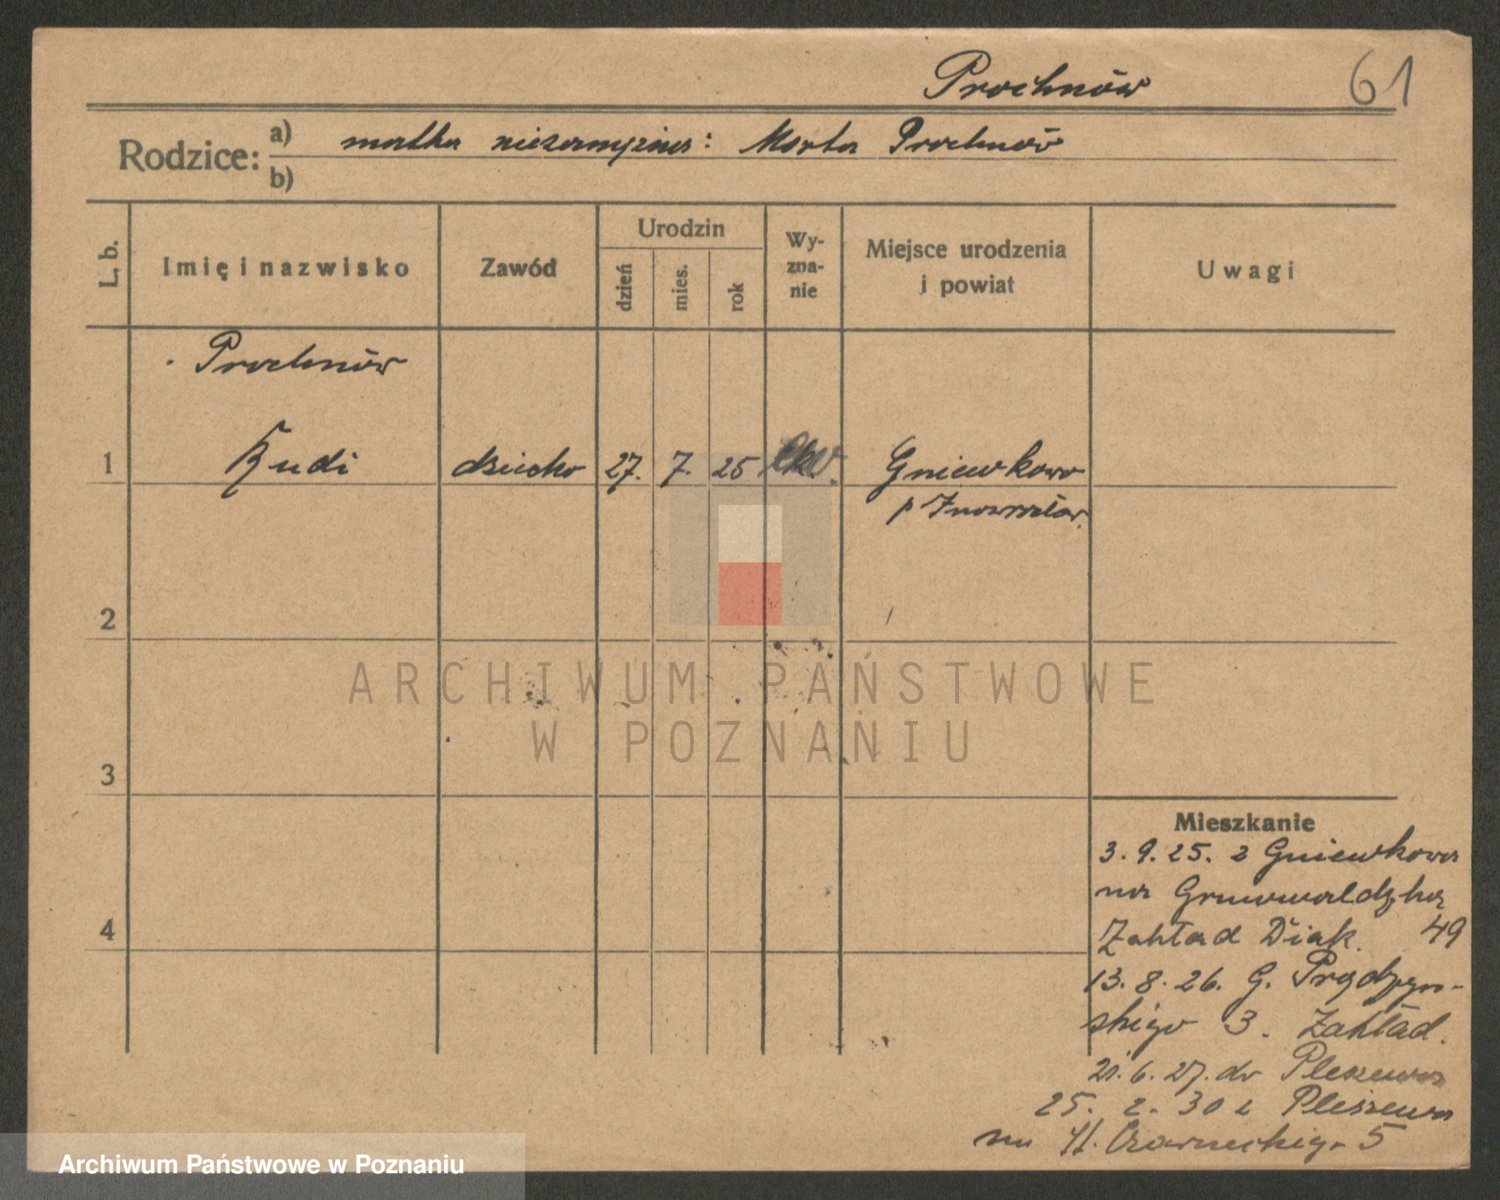 Prochnów 61
Rodzice: a) matka niezamężna: Marta Prochnów
b)
L. b. Imię i nazwisko Zawód Urodzin dzień mies. rok Wy-zna-nie Miejsce urodzenia i powiat Uwagi
Prochnów
1 Rudi dziecko 27. 7. 25 Gniewkowo
p Inowrocław.
2
ARCHIWUM PAŃSTWOWE
W POZNANIU
3
Mieszkanie
3. 9. 25. z Gniewkowa
na Grunwaldzką
Zakład Diak. 49
4
13. 8. 26. G. Prądzyń-
skiego 3. Zakład.
21. 6. 27. do Pleszewa
25. 2. 30 z Pleszewa
na Czarneckiego 5
Archiwum Państwowe w Poznaniu